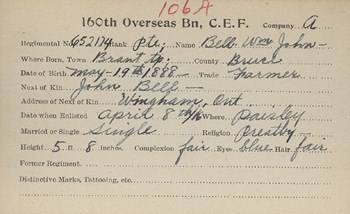 106A
160th Overseas Bn, C.E.F. Company A
Regimental No. 652174 Rank Pte. Name Bell Wm John
Where Born, Town Brant tp. County Bruce
Date of Birth May 19th 1888 Trade Farmer
Next of Kin John Bell
Address of Next of Kin Wingham, Ont
Date when Enlisted April 8th/16 Where Paisley
Married or Single Single Religion Presby
Height 5 ft 8 inches. Complexion fair Eyes blue Hair fair
Former Regiment.
Distinctive Marks, Tattooing, etc.